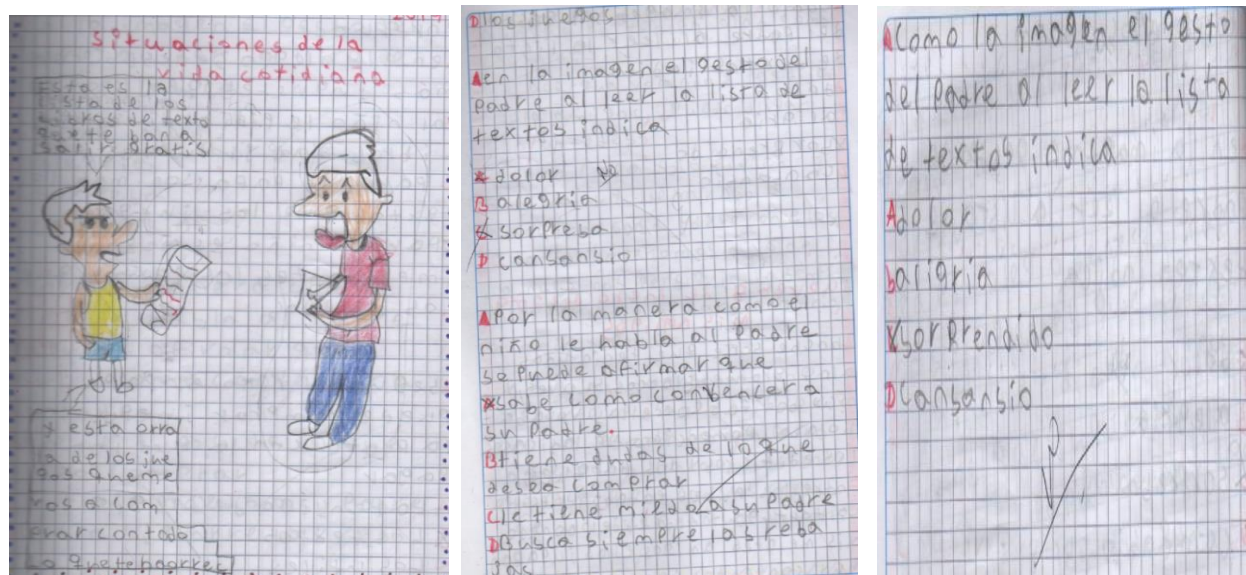 situaciones de la
vida cotidiana
Esta es la
lista de los
libros de texto
que te ban a
salir gratis
y esta orra
la de los jue
gos que me
vas a com
prar con todo
lo que te
D los juegos
A en la imagen el gesto del
padre al leer la lista de
textos indica
dolor
B alegria
sorpresa
D cansansio
A Por la manera como el
niño le habla al Padre
se puede afirmar que
sabe como conbencer a
su Padre.
B tiene dudas de lo que
desea comprar
C le tiene miedo a su Padre
D Busca siempre las reba
jas
A Como la imagen el gesto
del Padre al leer la lista
de textos indica
A dolor
b aligria
sorprendido
D cansansio